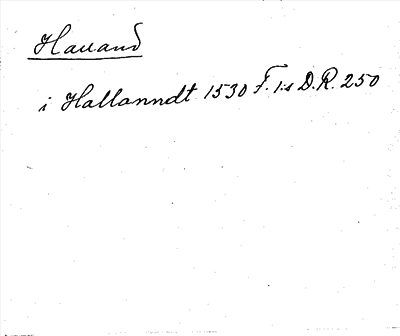 Halland
i Hallanndt 1530 F. 1:s D.R. 250